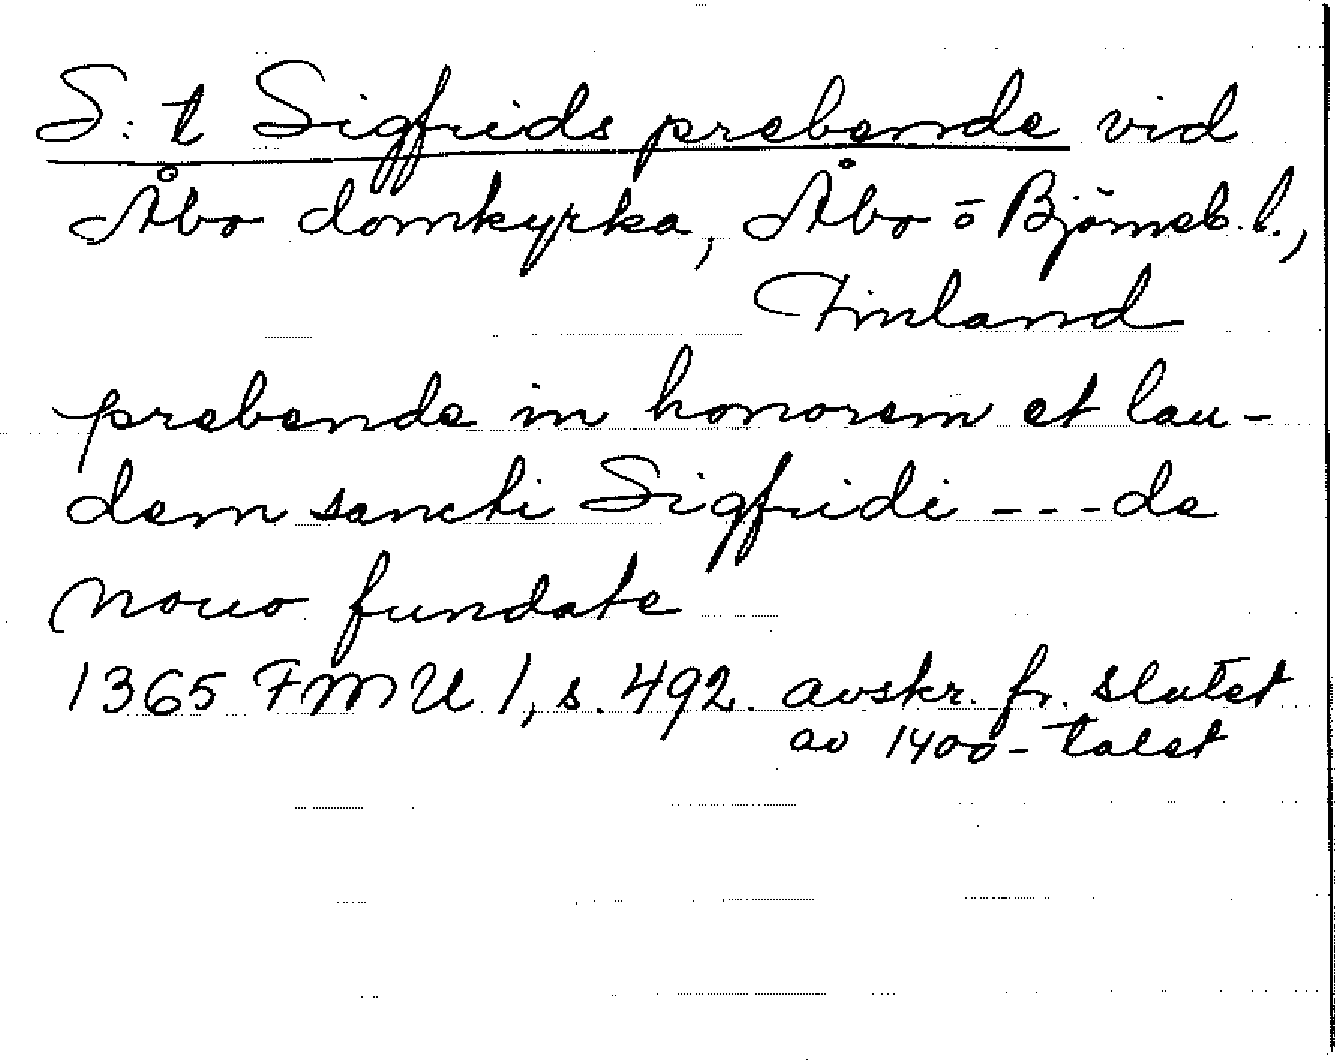 S:t Sigfrids prebende vid
Åbo domkyrka, Åbo o Björneb. l.,
Finland
prebende in honorem et lau-
dem sancti Sigfridi --- de
nouo fundate
1365 FMU 1, s. 492. avskr. fr. slutet
av 1400-talet